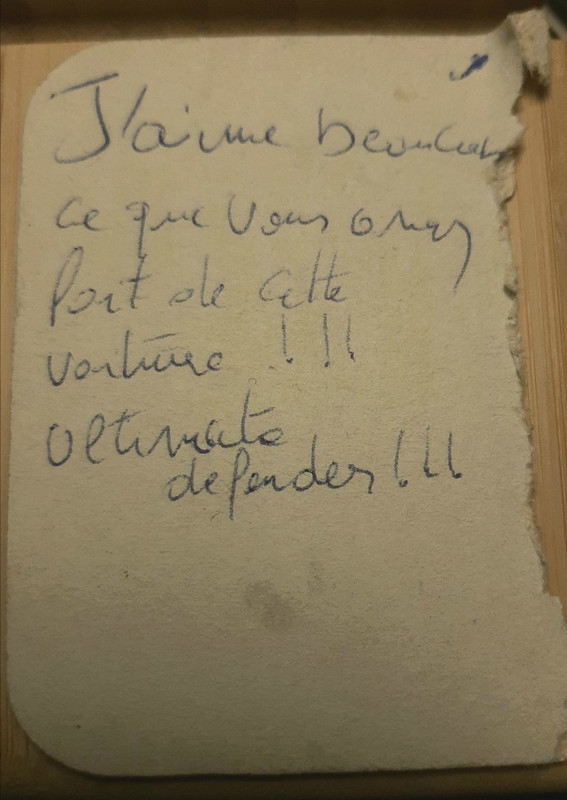 J'aime beaucoup
ce que vous avez
fait de cette
voiture !!!
Ultimate
defender !!!